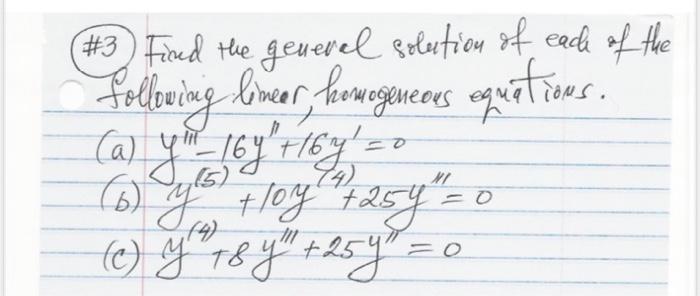 #3 Find the general solution of each of the
following linear, homogeneous equations.
(a) y''' - 16y'' + 16y' = 0
(b) y^(5) + 10y^(4) + 25y''' = 0
(c) y^(4) + 8y''' + 25y'' = 0